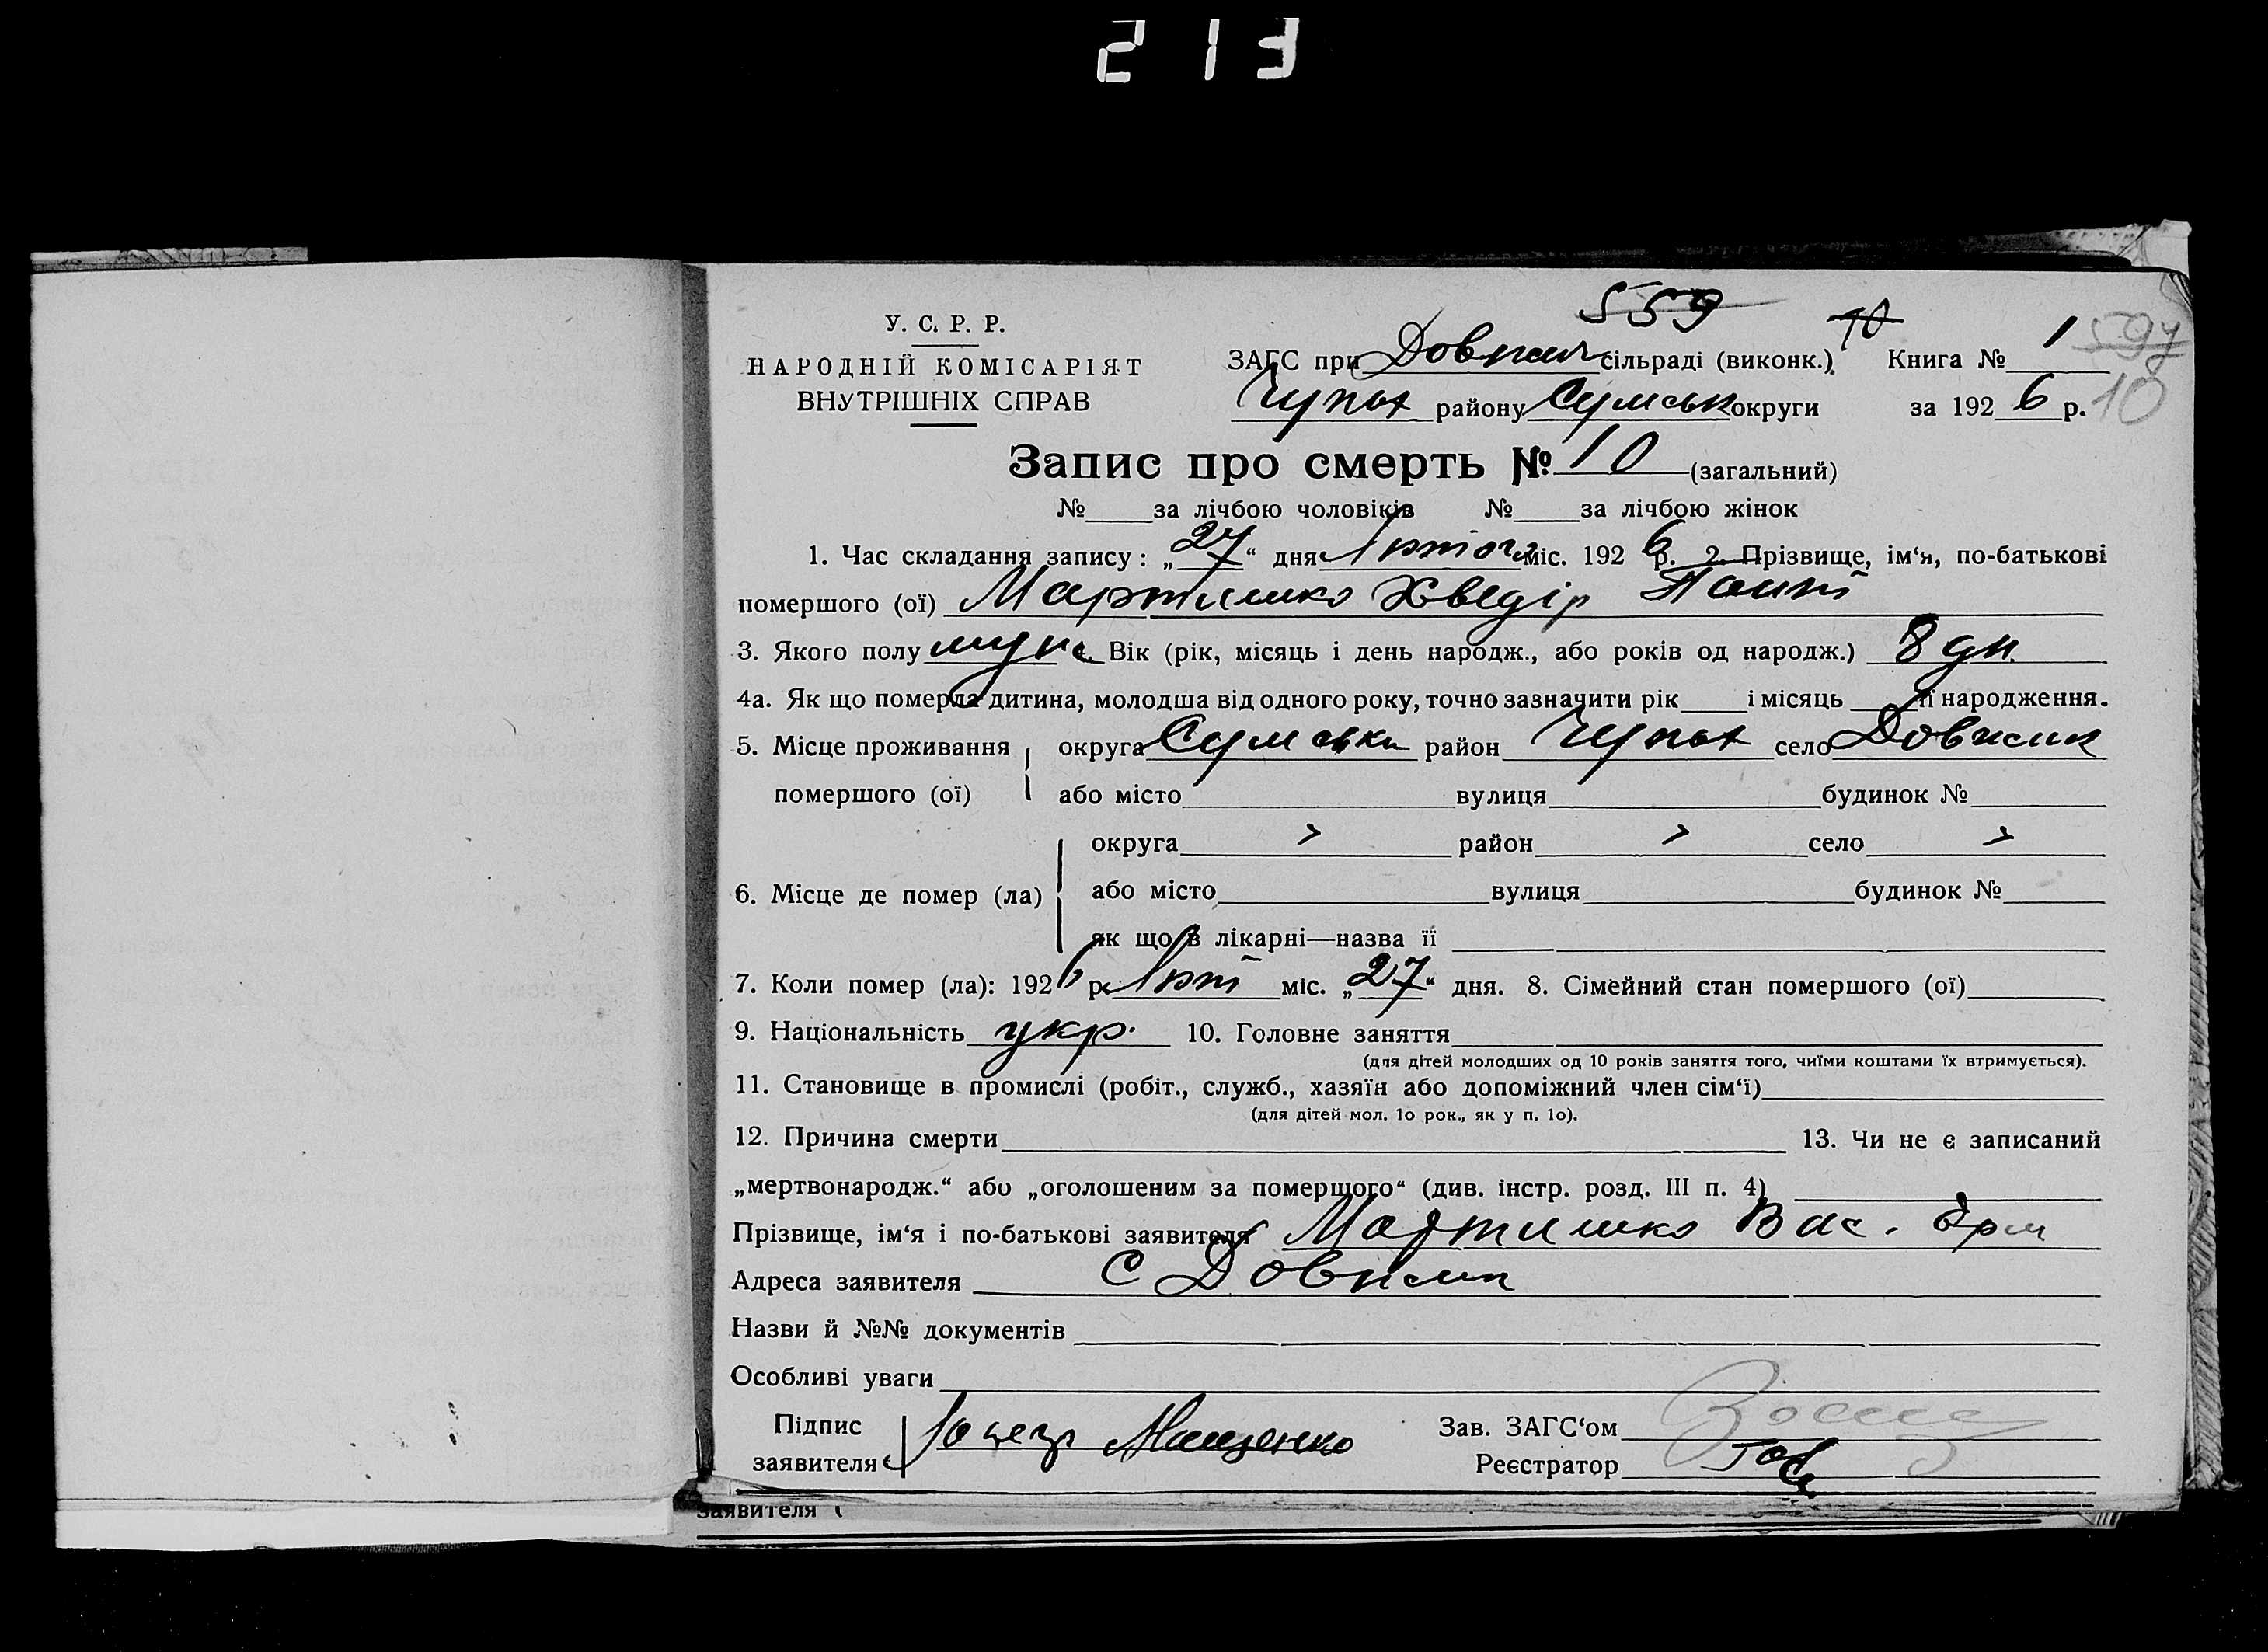 213
559
У. С. Р. Р.
НАРОДНІЙ КОМІСАРІЯТ
ВНУТРІШНІХ СПРАВ
ЗАГС при Довжик сільраді (виконк.) 10 Книга № 1 597
Чупах району Сумськ округи за 1926 р. 10
Запис про смерть № 10 (загальний)
№ за лічбою чоловіків № за лічбою жінок
1. Час складання запису: „27“ дня Лютого міс. 1926 р. 2. Прізвище, ім‘я, по-батькові
помершого (ої) Мартишко Хведір
3. Якого полу муж. Вік (рік, місяць і день народж., або років од народж.) 8 дн.
4а. Як що померла дитина, молодша від одного року, точно зазначити рік і місяць її народження.
5. Місце проживання округа Сумська район Чупах село Довжик
помершого (ої) або місто вулиця будинок №
округа » район » село »
6. Місце де помер (ла) або місто вулиця будинок №
як що в лікарні—назва її
7. Коли помер (ла): 1926 р. Лют міс. „27“ дня. 8. Сімейний стан помершого (ої)
9. Національність укр. 10. Головне заняття
(для дітей молодших од 10 років заняття того, чиїми коштами їх втримується).
11. Становище в промислі (робіт., служб., хазяїн або допоміжний член сім‘ї)
(для дітей мол. 10 рок., як у п. 10).
12. Причина смерти 13. Чи не є записаний
„мертвонародж.“ або „оголошеним за померщого“ (див. інстр. розд. III п. 4)
Прізвище, ім‘я і по-батькові заявителя Мартишко Вас.
Адреса заявителя С Довжик
Назви й №№ документів
Особливі уваги
Підпис Зав. ЗАГС‘ом
заявителя Реєстратор
заявителя (